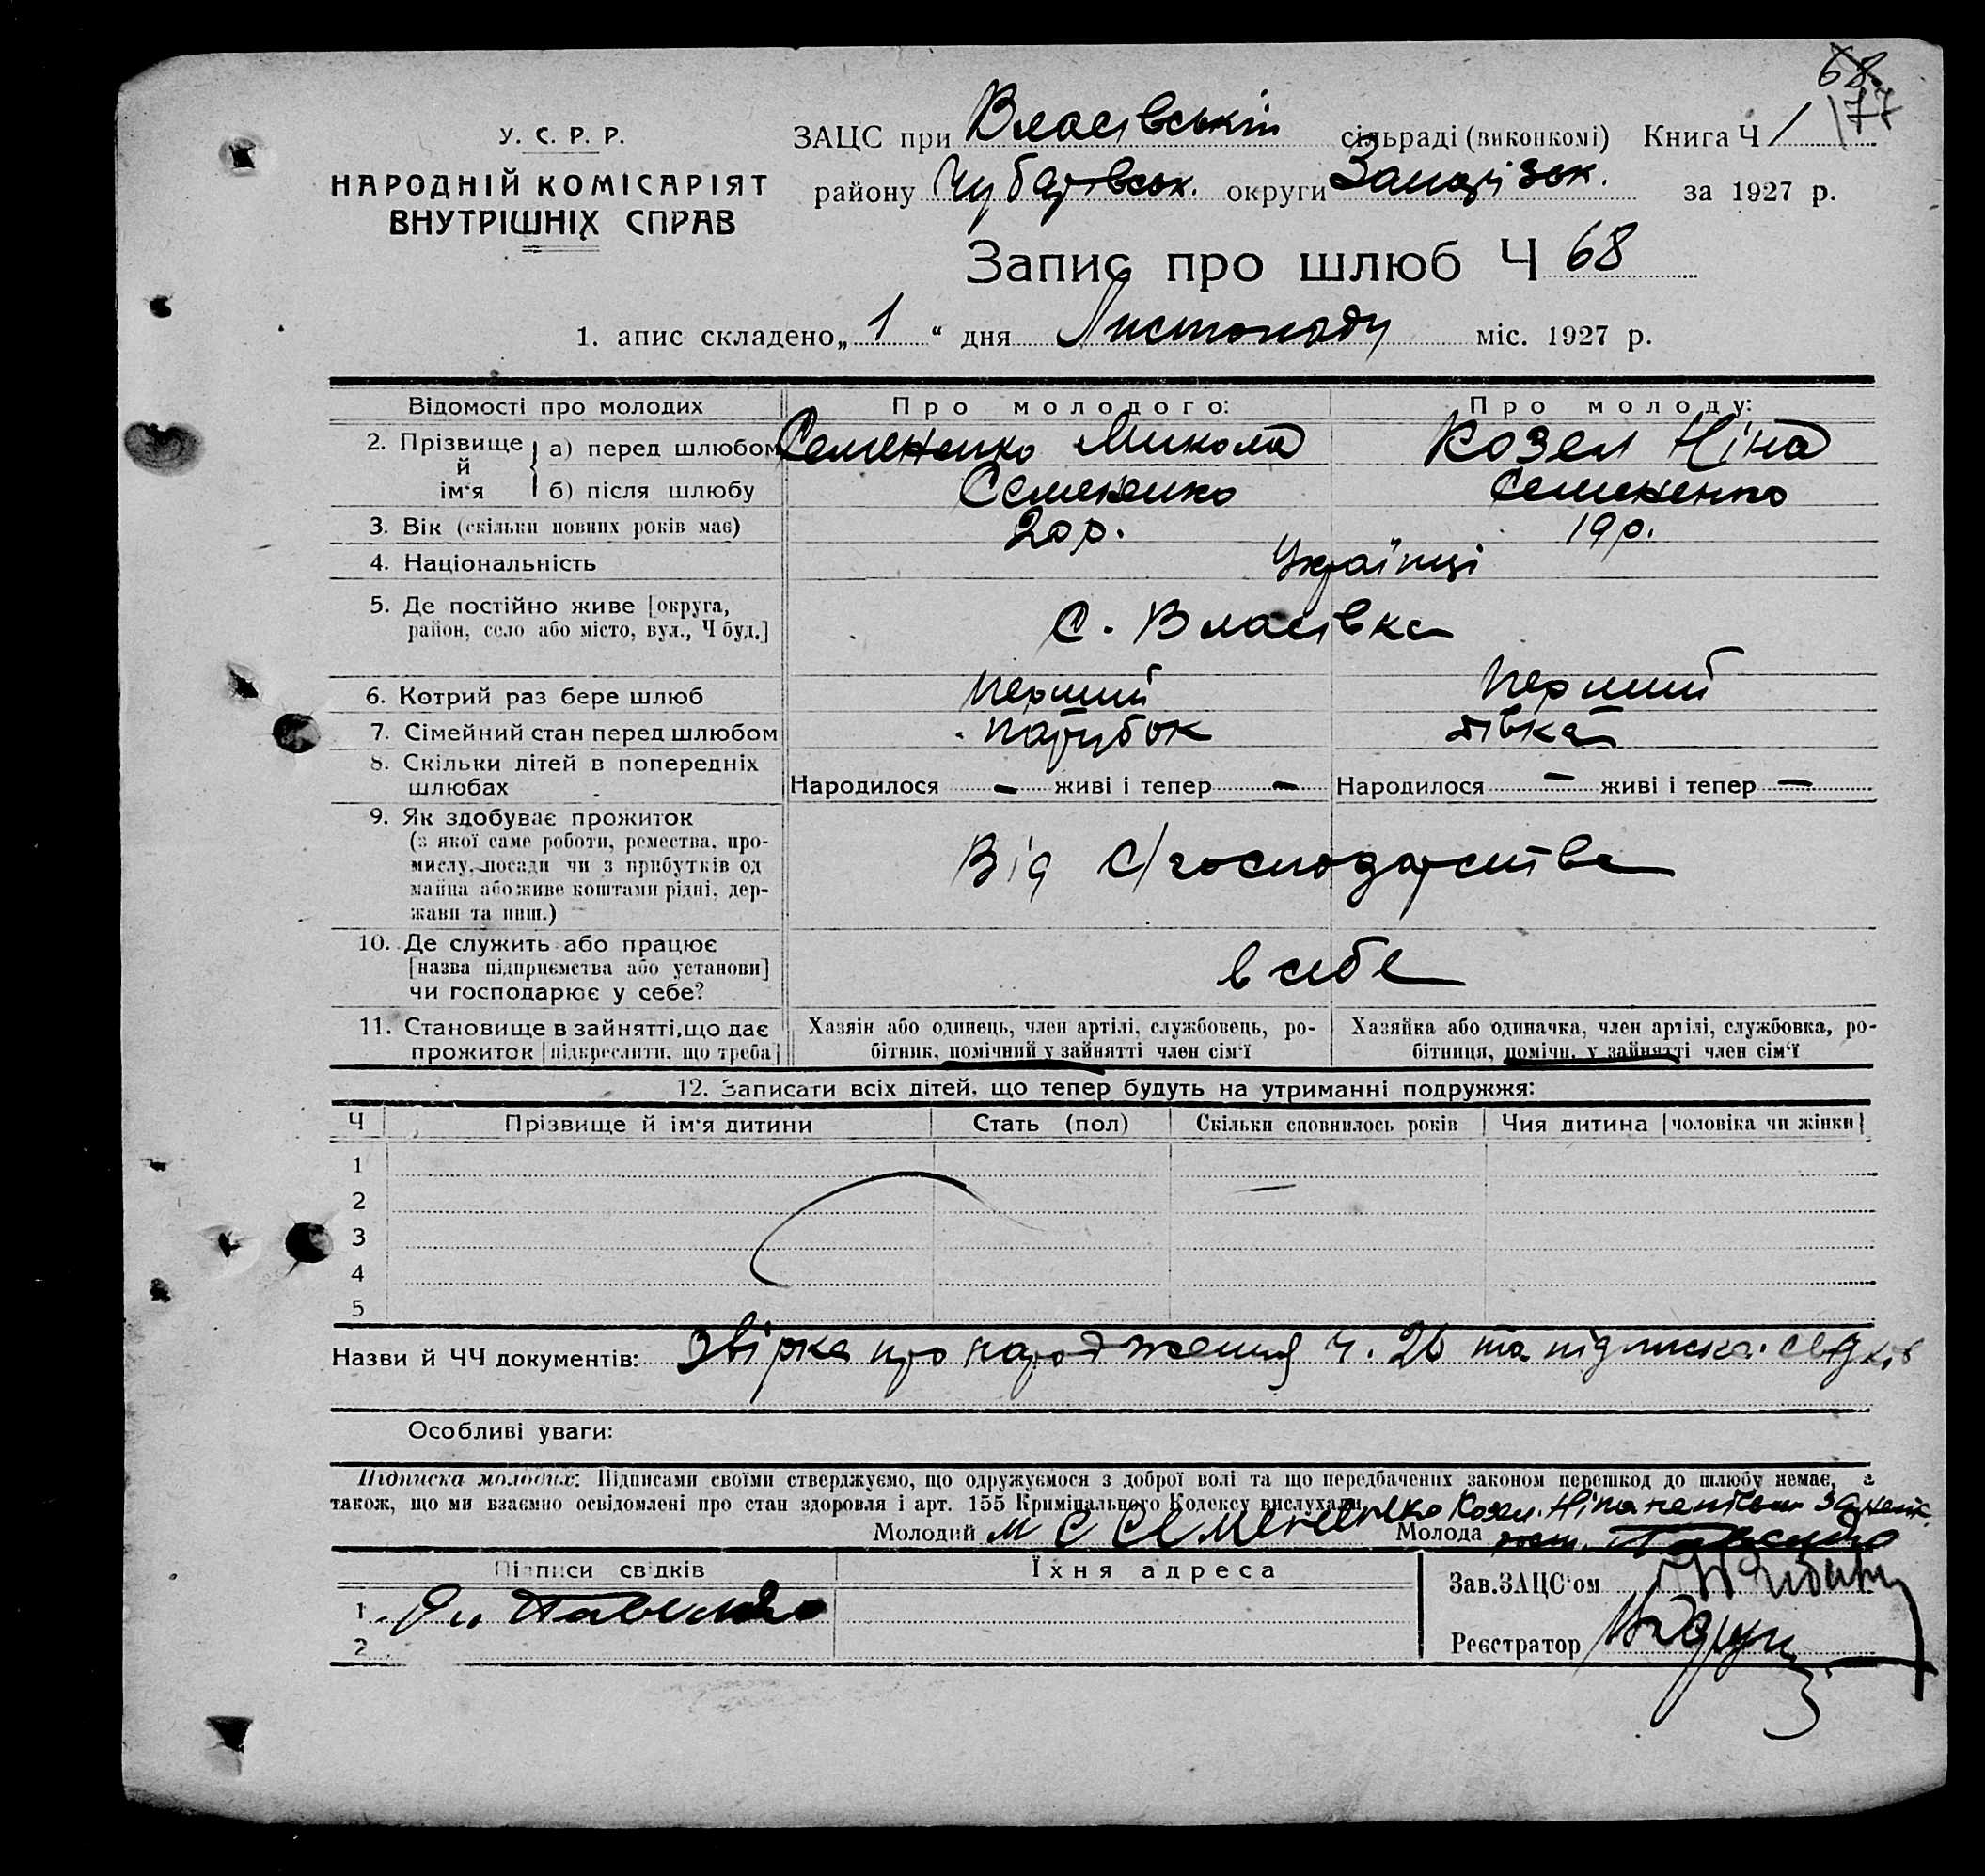 68
177
У. С. Р. Р.
НАРОДНІЙ КОМІСАРІЯТ
ВНУТРІШНІХ СПРАВ
ЗАЦС при Власівській сільраді (виконкомі) Книга Ч 1
району Чубарівськ. округи Запорізьк. за 1927 р.
Запис про шлюб Ч 68
1. апис складено „ 1 “ дня Листопаду міс. 1927 р.
Відомості про молодих Про молодого: Про молоду:
2. Прізвище й ім‘я а) перед шлюбом Семененко Микола Козел Ніна
б) після шлюбу Семененко Семененко
3. Вік (скільки повних років має) 20 р. 19 р.
4. Національність Українці
5. Де постійно живе [округа,
район, село або місто, вул., Ч буд.] С. Власівка
6. Котрий раз бере шлюб перший перший
7. Сімейний стан перед шлюбом парубок дівка
8. Скільки дітей в попередніх
шлюбах Народилося — живі і тепер — Народилося — живі і тепер —
9. Як здобуває прожиток
(з якої саме роботи, ремества, про-
мислу, посади чи з прибутків од
майна або живе коштами рідні, дер-
жави та инш.) Від с/господарства
10. Де служить або працює
[назва підприємства або установи]
чи господарює у себе? в себе
11. Становище в зайнятті, що дає
прожиток [підкреслити, що треба]
Хазяін або одинець, член артілі, службовець, ро-
бітник, помічний у зайнятті член сім‘ї
Хазяйка або одиначка, член артілі, службовка, ро-
бітниця, помічн. у зайнятті член сім‘ї
12. Записати всіх дітей, що тепер будуть на утриманні подружжя:
Ч Прізвище й ім‘я дитини Стать (пол) Скільки сповнилось років Чия дитина [чоловіка чи жінки]
1
2
3
4
5
Назви й ЧЧ документів: Звірка про народження ч. 26 та підписка свідків
Особливі уваги:
Підписка молодих: Підписами своїми стверджуємо, що одружуємося з доброї волі та що передбачених законом перешкод до шлюбу немає, а
також, що ми взаємно освідомлені про стан здоровля і арт. 155 Кримінального Кодексу вислухали
Молодий М С Семененко Молода Козел Ніна
Підписи свідків Їхня адреса
Зав. ЗАЦС‘ом
1
2
Реєстратор